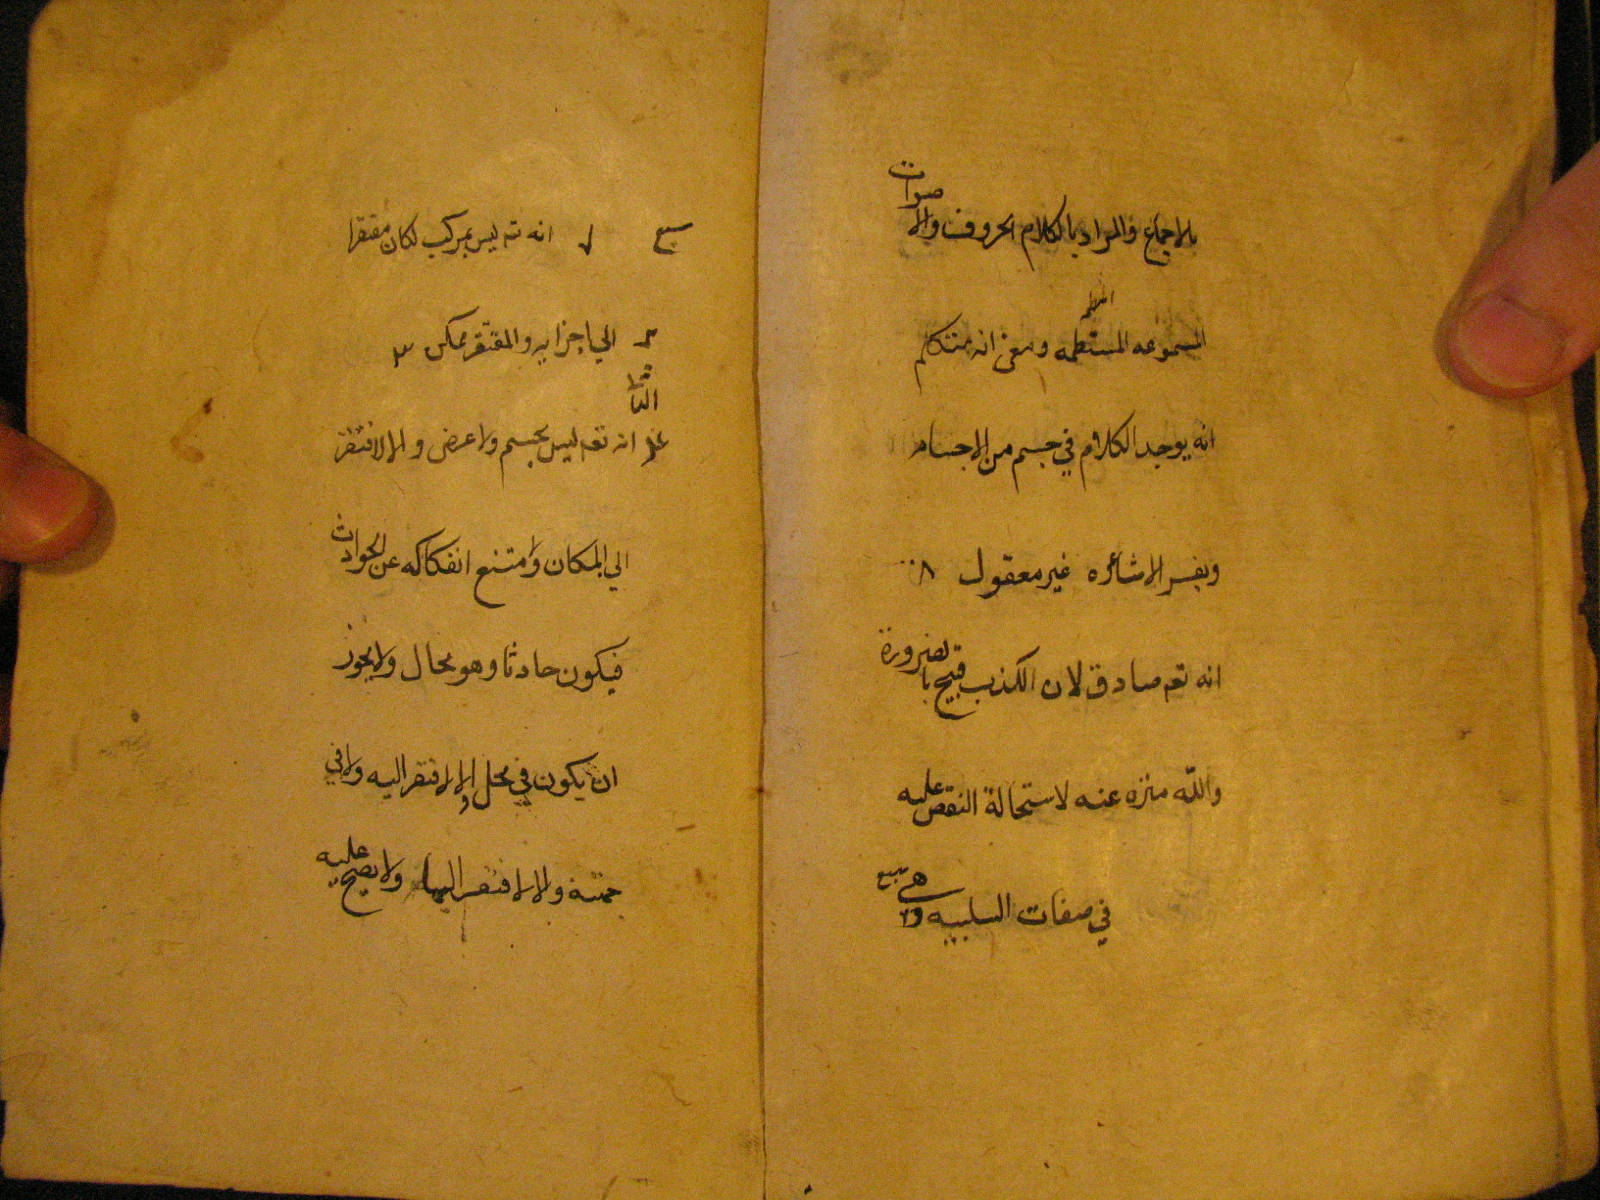 بالاجماع والمراد بالكلام الحروف والاصوات
المسموعه المنتظمه ومعنى انه متكلم
انه يوجد الكلام في جسم من الاجسام
وتفسير الاشاعره غير معقول ٨
انه تعم صادق لان الكذب قبيح بالضرورة
والله منزه عنه لاستحالة النقص عليه
في صفات السلبيه وهي سبع
سبع ١ انه تع ليس بمركب لكان مفتقرا
الي اجزايه والمفتقر ممكن
انه تعم ليس بجسم ولا عرض والا لافتقر
الي المكان ولامتنع انفكاكه عن الحوادث
فيكون حادثا وهو محال ولا يجوز
ان يكون في محل والا لافتقر اليه ولا في
جهته والا لافتقر اليها ولا يصح عليه